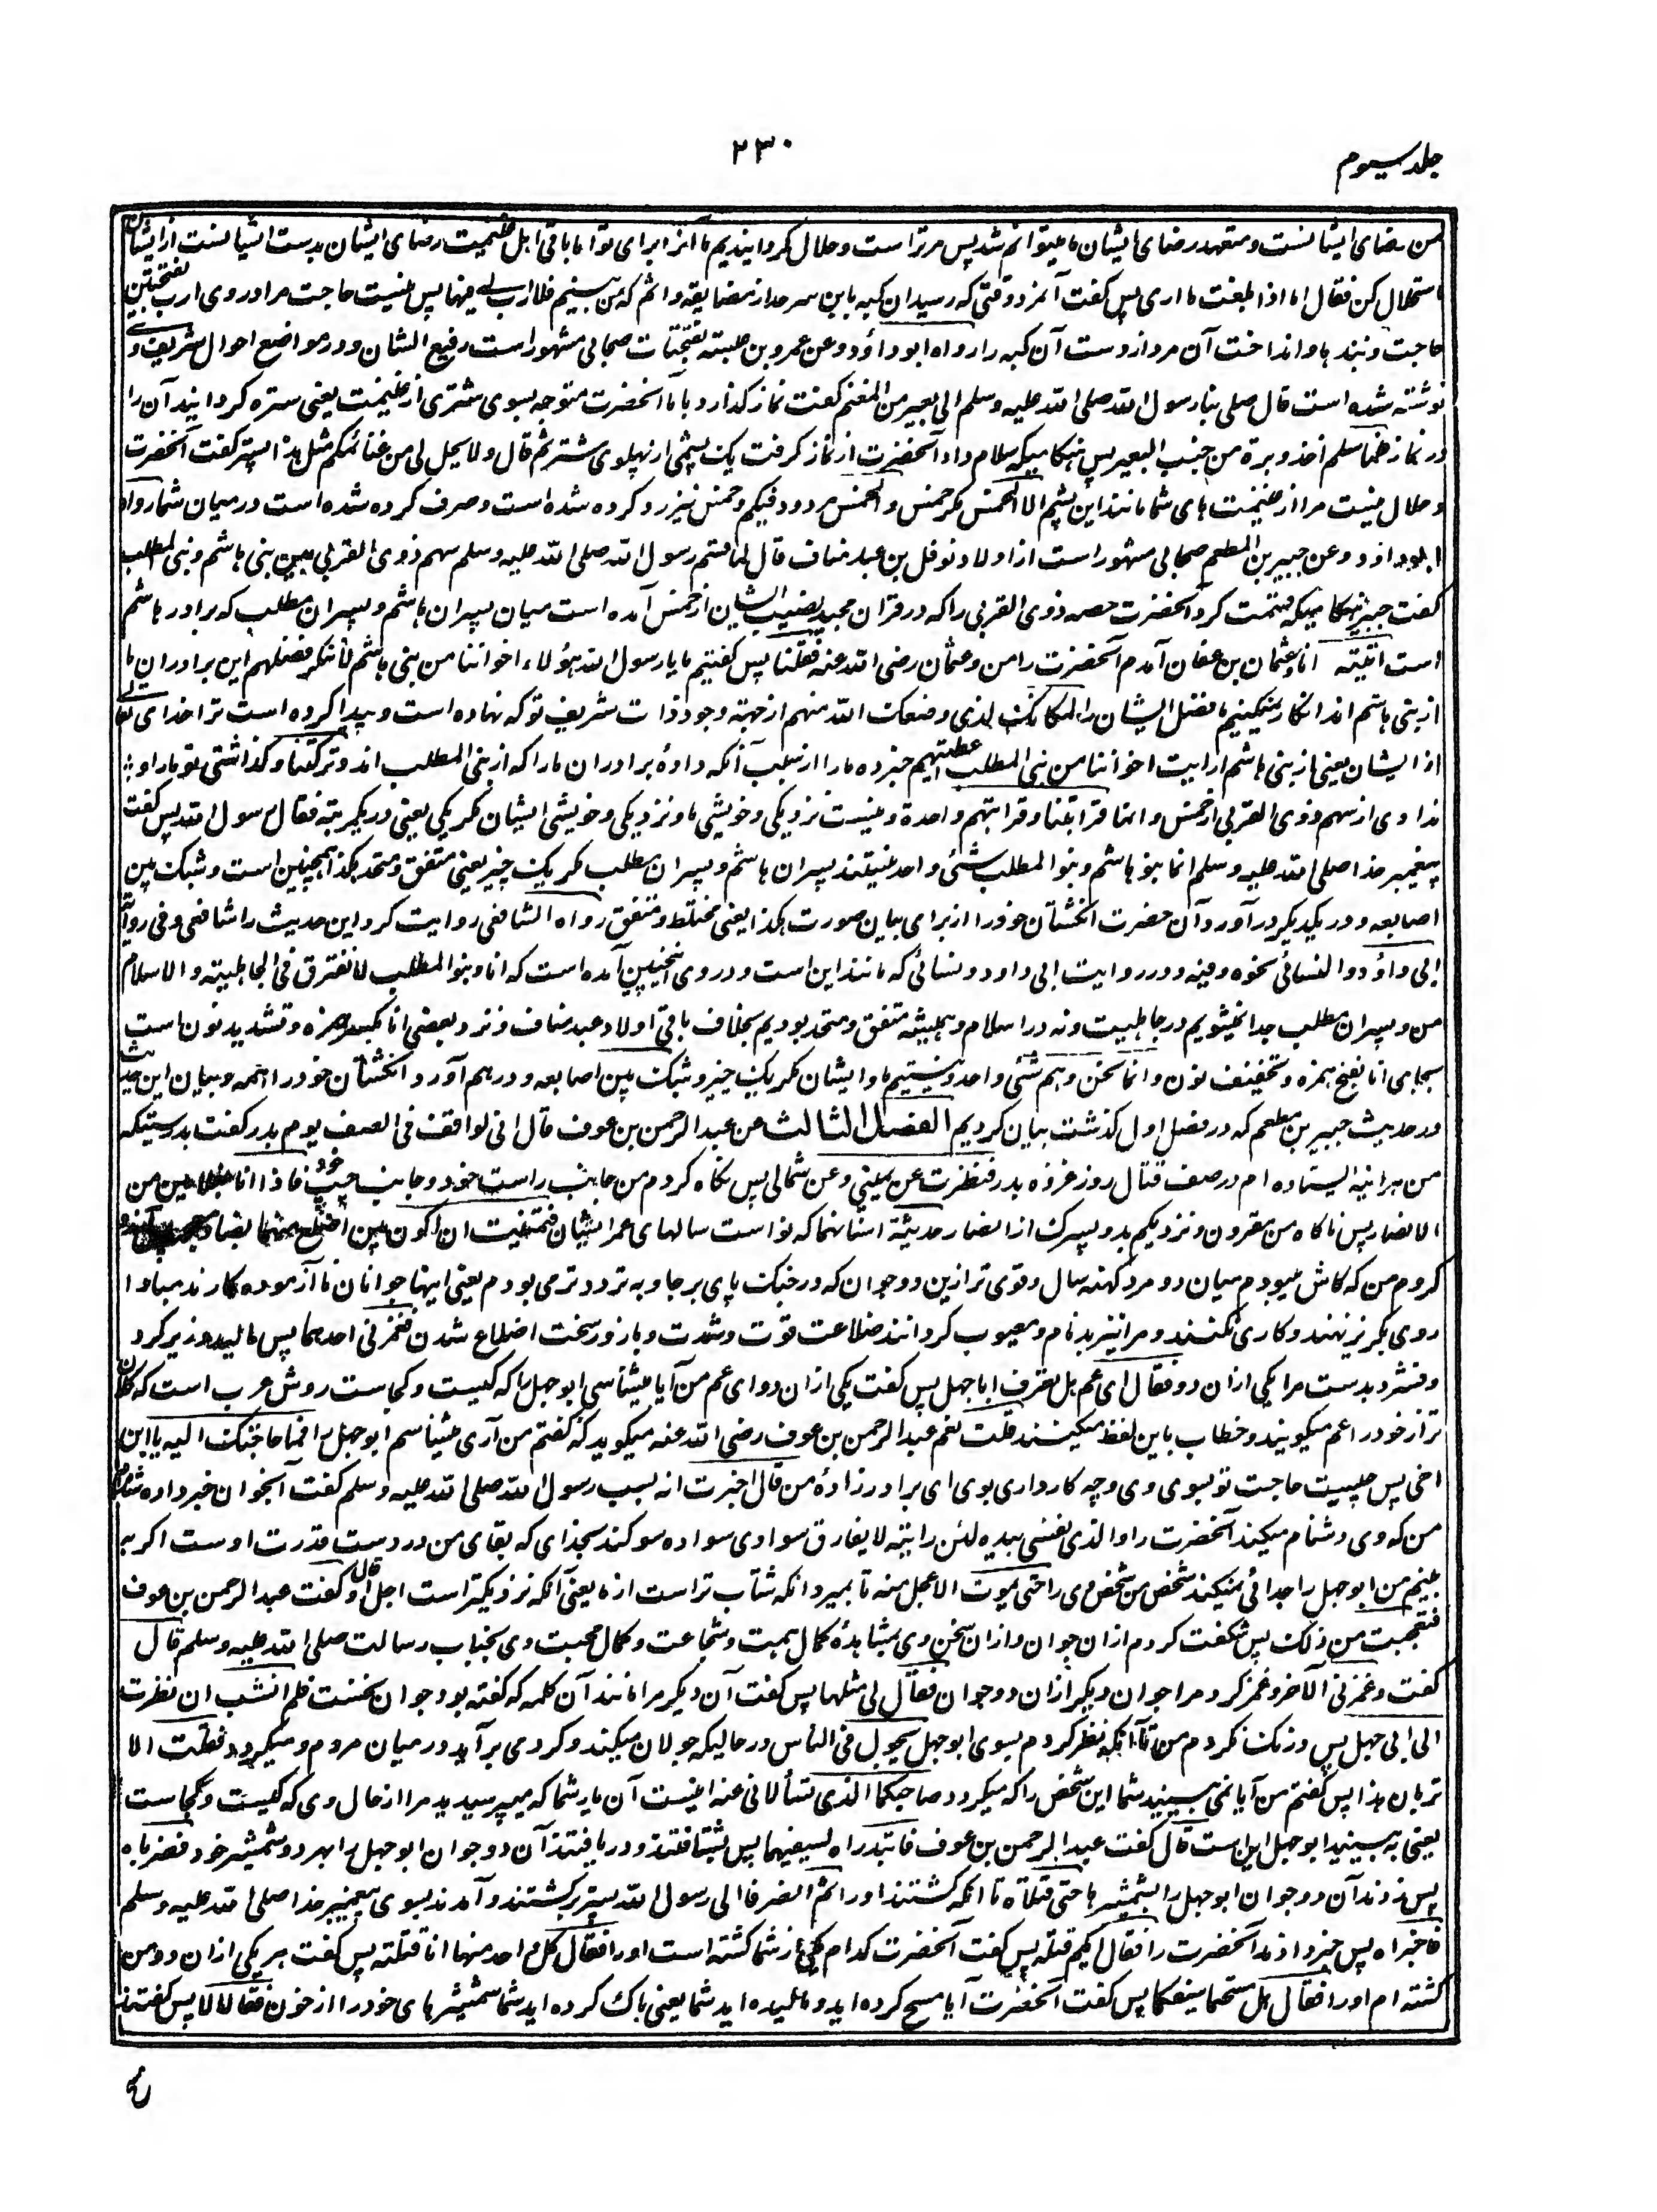 جلد سیوم
۲۳۰
من رضای ایشانست و متعهد رضای ایشان ما میتوانم شد پس مر تراست و حلال گردانیدیم ما آنرا برای تو اما باقی اهل غنیمت رضای ایشان بدست ایشانست از ایشان
استحلال کن فقال اما اذا بلغت ما اری پس گفت آنمرد وقتی که رسید این کبه باین سرحد از مضایقه و اثم که من بینم فلا ارب لی فیها پس نیست حاجت مرا در وی ارب بفتحتین
حاجت و نبذها و انداخت آن مرد از دست آن کبه را رواه ابو داؤد وعن عمرو بن عبسة بفتحات صحابی مشهور است رفیع الشان و در مواضع احوال شریف وی
نوشته شده است قال صلی بنا رسول الله صلی الله علیه وسلم الی بعیر من المغنم گفت نماز گذارد با ما آنحضرت متوجه بسوی شتری از غنیمت یعنی ستره گردانید آن را
در نماز فلما سلم اخذ وبرة من جنب البعیر پس هنگامیکه سلام داد آنحضرت از نماز گرفت یک پشمی از پهلوی شتر ثم قال ولا یحل لی من غنائمکم مثل هذا پستر گفت آنحضرت
و حلال نیست مرا از غنیمت های شما مانند این پشم الا الخمس مگر خمس والخمس مردود فیکم و خمس نیز رد کرده شده است و صرف کرده شده است در میان شما رواه
ابو داود وعن جبیر بن المطعم صحابی مشهور است از اولاد نوفل بن عبد مناف قال لما قسم رسول الله صلی الله علیه وسلم سهم ذوی القربی بین بنی هاشم و بنی المطلب
گفت جبیر هنگامیکه قسمت کرد آنحضرت حصه ذوی القربی را که در قرآن مجید نصیب ایشان از خمس آمده است میان پسران هاشم و پسران مطلب که برادر هاشم
است اتیته انا وعثمان بن عفان آمدم آنحضرت را من و عثمان رضی الله عنه فقلنا پس گفتیم ما یا رسول الله هؤلاء اخواننا من بنی هاشم لا ننکر فضلهم این برادران ما
از بنی هاشم اند انکار نمیکنیم ما فضل ایشان را لمکانک الذی وضعک الله منهم از جهة وجود ذات شریف تو که نهاده است و پیدا کرده است ترا خدای تعالی
از ایشان یعنی از بنی هاشم ارایت اخواننا من بنی المطلب اعطیتهم خبر ده ما را از سبب آنکه دادۀ برادران ما را که از بنی المطلب اند وترکتنا و گذاشتی تو ما را و
ندادی از سهم ذوی القربی از خمس وانما قرابتنا وقرابتهم واحدة و نیست نزدیکی و خویشی ما و نزدیکی و خویشی ایشان مگر یکی یعنی در یک مرتبه فقال رسول الله پس گفت
پیغمبر خدا صلی الله علیه وسلم انما بنو هاشم وبنو المطلب شئ واحد نیستند پسران هاشم و پسران مطلب مگر یک چیز یعنی متفق و متحد هکذا همچنین است وشبک بین
اصابعه و در یکدیگر در آورد آن حضرت انگشتان خود را از برای بیان صورت هکذا یعنی مختلط و متفق رواه الشافعی روایت کرد این حدیث را شافعی وفی روایة
ابی داؤد والنسائی نحوه وفیه و در روایت ابی داود و نسائی که مانند این است و در وی اینچنین آمده است که انا وبنو المطلب لا نفترق فی الجاهلیة والاسلام
من و پسران مطلب جدا نمیشویم در جاهلیت و نه در اسلام و همیشه متفق و متحد بودیم بخلاف باقی اولاد عبد مناف و نزد بعضی انا بکسر همزه و تشدید نون است
بجای انا بفتح همزه و تخفیف نون وانما نحن وهم شئ واحد و نیستیم ما و ایشان مگر یک چیز وشبک بین اصابعه و در هم آورد انگشتان خود را تتمه و بیان این حدیث
در حدیث جبیر بن مطعم که در فصل اول گذشت بیان کردیم الفصل الثالث عن عبد الرحمن بن عوف قال انی لواقف فی الصف یوم بدر گفت بدرستیکه
من هر آینه ایستاده ام در صف قتال روز غزوه بدر فنظرت عن یمینی وعن شمالی پس نگاه کردم من جانب راست خود و جانب چپ خود فاذا انا بغلامین من
الانصار پس ناگاه من مقرون و نزدیکم بدو پسرک از انصار حدیثة اسنانهما که نو است سالهای عمر ایشان فتمنیت ان اکون بین اضلع منهما پس آرزو
کردم من که کاش میبودم میان دو مرد کهنه سال و قوی تر ازین دو جوان که در جنگ پای بر جا و به تردد تر می بودم یعنی اینها جوانان نا آزموده کار اند مبادا
روی بگریز نهند و کاری نکنند و مرا نیز بدنام و معیوب گردانند ضلاعت قوت و شدت و بازو سخت اضلاع شدن فغمزنی احدهما پس مالید و زیر کرد
و فشرد بدست مرا یکی ازان دو فقال ای عم هل تعرف ابا جهل پس گفت یکی ازان دو ای عم من آیا میشناسی ابو جهل را که کیست و کجاست روش عرب است که کلان
تر از خود را عم میگویند و خطاب باین لفظ میکنند قلت نعم عبد الرحمن بن عوف رضی الله عنه میگوید که گفتم من آری میشناسم ابو جهل را فما حاجتک الیه یا ابن
اخی پس چیست حاجت تو بسوی وی و چه کار داری بوی ای برادر زادۀ من قال اخبرت انه یسب رسول الله صلی الله علیه وسلم گفت آنجوان خبر داده شده ام
من که وی دشنام میکند آنحضرت را والذی نفسی بیده لئن رایته لا یفارق سوادی سواده سوگند بخدای که بقای من در دست قدرت اوست اگر به
بینم من ابو جهل را جدائی نمیکند شخص من شخص وی را حتی یموت الاعجل منه تا بمیرد آنکه شتاب تر است از ما یعنی آنکه نزدیکتر است اجل او قال گفت عبد الرحمن بن عوف
فتعجبت من ذلک پس شگفت کردم ازان جوان و ازان سخن وی بمشاهدۀ کمال همت و شجاعت و کمال محبت وی بجناب رسالت صلی الله علیه وسلم قال
گفت وغمزنی الآخر و غمز کرد مرا جوان دیگر ازان دو جوان فقال لی مثلها پس گفت آن دیگر مرا مانند آن کلمه که گفته بود جوان نخست فلم انشب ان نظرت
الی ابی جهل پس درنگ نکردم من تا آنکه نظر کردم بسوی ابو جهل یجول فی الناس در حالیکه جولان میکند و گرد می برآید در میان مردم و میگردد فقلت الا
تریان هذا پس گفتم من آیا نمی بینید شما این شخص را که میگردد صاحبکما الذی تسألانی عنه اینست آن یار شما که میپرسیدید مرا از حال وی که کیست و کجاست
یعنی به بینید ابو جهل این است قال گفت عبد الرحمن بن عوف فابتدراه بسیفیهما پس شتافتند و دریافتند آن دو جوان ابو جهل را بهر دو شمشیر خود فضرباه
پس زدند آن دو جوان ابو جهل را بشمشیرها حتی قتلاه تا آنکه کشتند او را ثم انصرفا الی رسول الله پستر برگشتند و آمدند بسوی پیغمبر خدا صلی الله علیه وسلم
فاخبراه پس خبر دادند آنحضرت را فقال ایکم قتله پس گفت آنحضرت کدام یکی از شما کشته است او را فقال کل واحد منهما انا قتلته پس گفت هر یکی ازان دو من
کشته ام او را فقال هل مسحتما سیفیکما پس گفت آنحضرت آیا مسح کرده اید و مالیده اید شما یعنی پاک کرده اید شما شمشیرهای خود را از خون فقالا لا پس گفتند